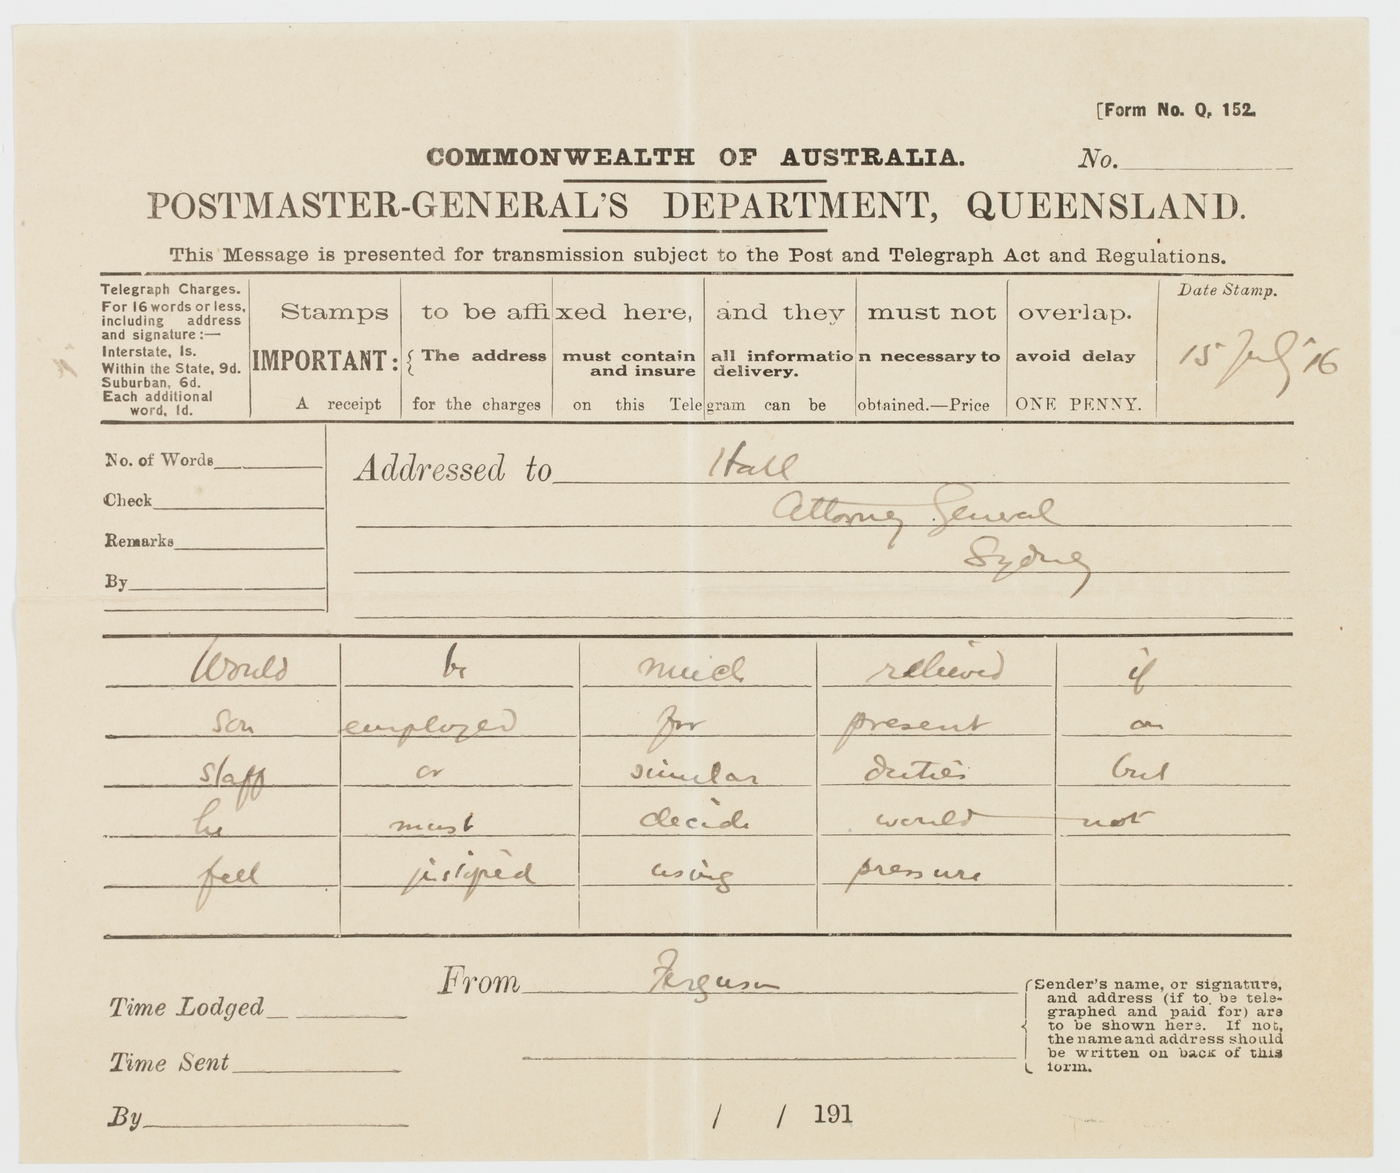 [Form No. Q, 152.
COMMONWEALTH OF AUSTRALIA.
No.
POSTMASTER-GENERAL'S DEPARTMENT, QUEENSLAND.
This Message is presented for transmission subject to the Post and Telegraph Act and Regulations.
Telegraph Charges.
For 16 words or less,
including address
and signature:—
Interstate, 1s.
Within the State, 9d.
Suburban, 6d.
Each additional
word, 1d.
Stamps to be affixed here, and they must not overlap.
IMPORTANT: { The address must contain all information necessary to avoid delay
and insure delivery.
A receipt for the charges on this Telegram can be obtained.—Price ONE PENNY.
Date Stamp.
15 July '16
No. of Words
Check
Remarks
By
Addressed to Hall
Attorney General
Sydney
Would be much relieved if
son employed for present on
staff or similar duties but
he must decide would not
feel justified using pressure
From Ferguson
Time Lodged
Time Sent
By
/ / 191
Sender's name, or signature,
and address (if to be tele-
graphed and paid for) are
to be shown here. If not,
the name and address should
be written on back of this
form.